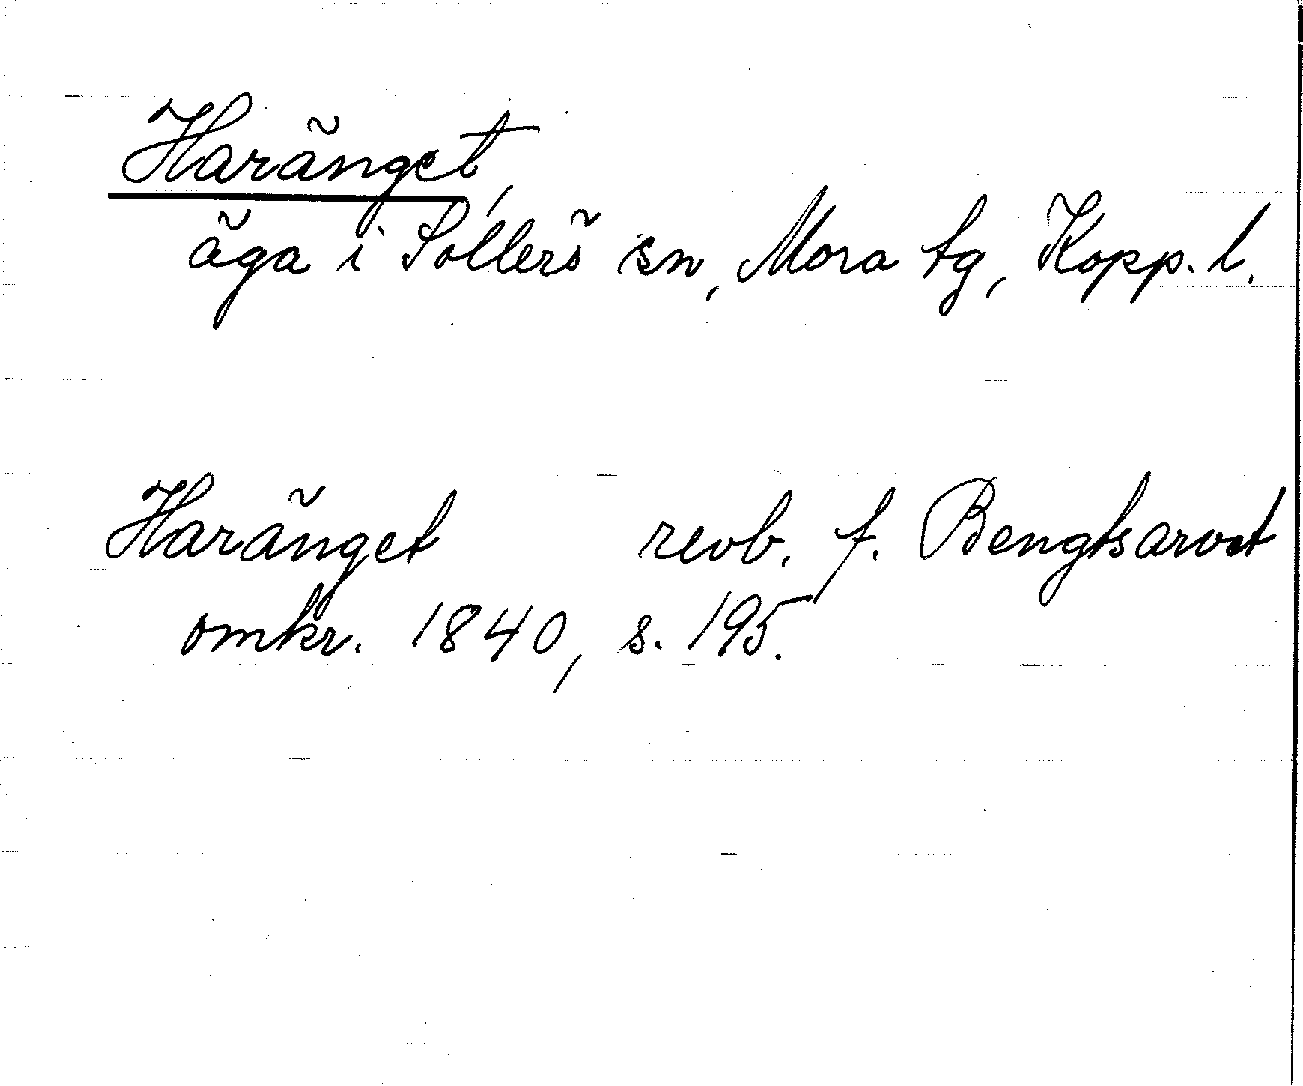 Haränget,
äga i Sollerö sn, Mora tg, Kopp. l.
Haränget revb. f. Bengtsarvet
omkr. 1840, s. 195.